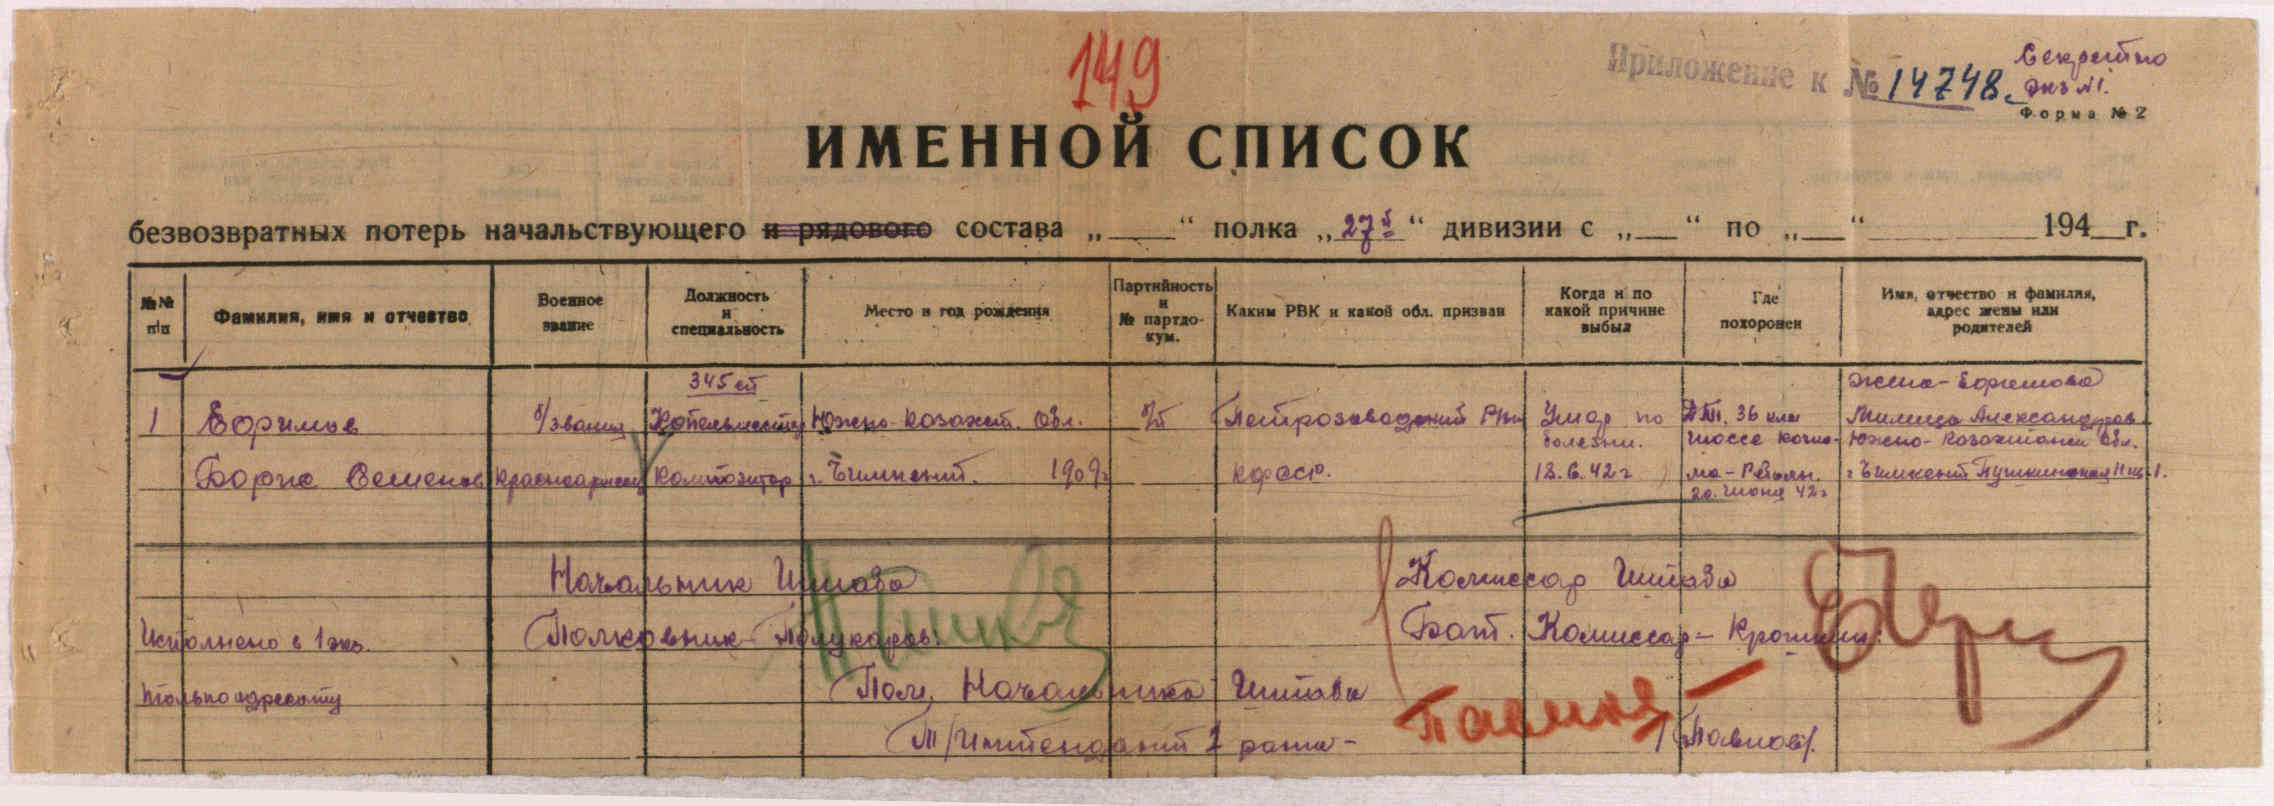 149
Приложение к № 14748.
Секретно
экз №1.
Форма № 2
ИМЕННОЙ СПИСОК
безвозвратных потерь начальствующего и рядового состава „___“ полка „27й“ дивизии с „___“ по „___“ ______ 194__г.
№№ п/п
Фамилия, имя и отчество
Военное звание
Должность и специальность
Место и год рождения
Партийность и № партдокум.
Каким РВК и какой обл. призван
Когда и по какой причине выбыл
Где похоронен
Имя, отчество и фамилия, адрес жены или родителей
345 сп
жена - Ефремова
1 Ефримов б/звания Копельместер Южно-Козахст. Обл. б/п Петрозаводский РВК Умар по 36 клм
болезни. шоссе Южно-Козахстанск Обл.
Борис Семенов Красноармеец Композитор г. Чимкент. 1909г КФССР. 18.6.42 г г Чимкент Пушкинская
20. июня 42г
Начальник Штаба Комиссар Штаба
Исполнено в 1 экз. Полковник Полукаров. Бат. Комиссар -
только адресату Пом. Начальника Штаба
Т/Интендант 2 ранга - /Павлов/.